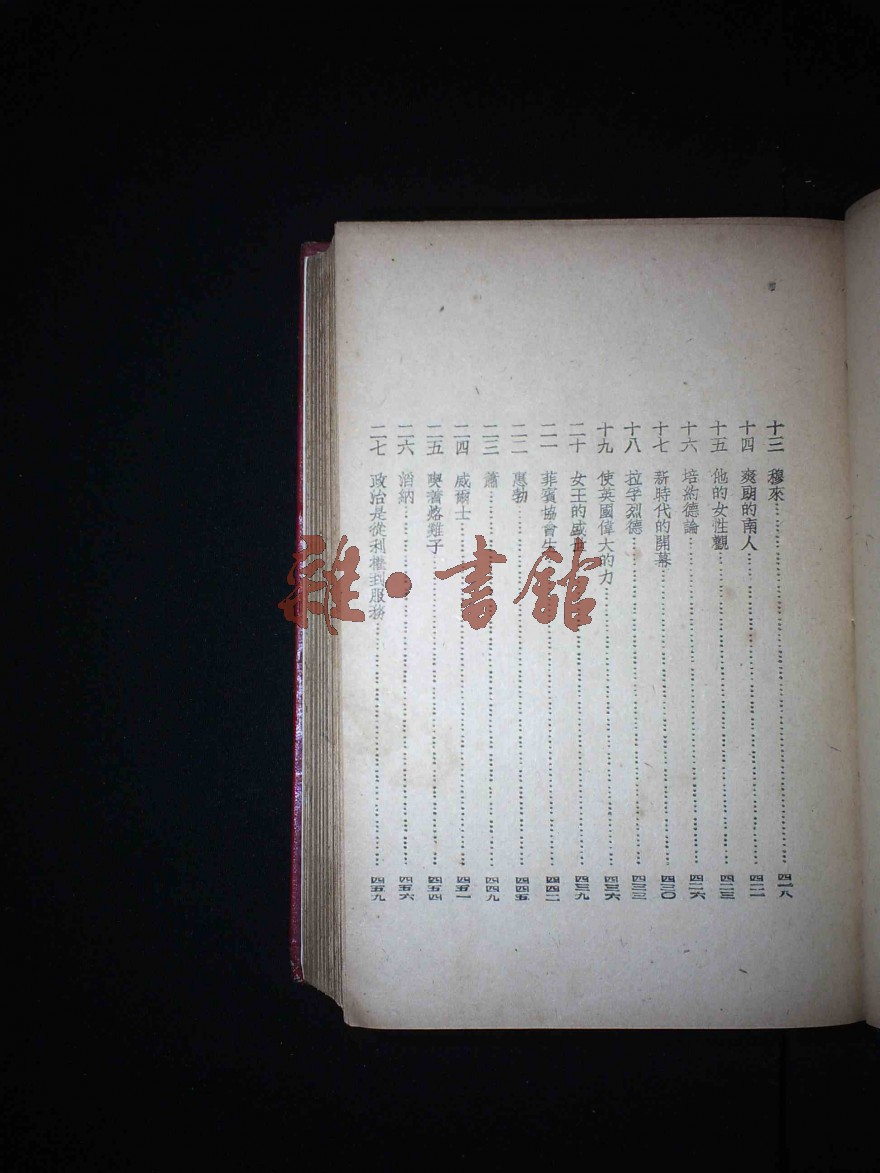 十三 穆來……四一八
十四 爽朗的南人……四二一
十五 他的女性觀……四二三
十六 培約德論……四二六
十七 新時代的開幕……四三〇
十八 拉孚烈德……四三三
十九 使英國偉大的力……四三六
二十 女王的盛……四三九
二一 菲賓協會……四四二
二二 惠勃……四四五
二三 蕭……四四九
二四 威爾士……四五一
二五 喫着烙雞子……四五四
二六 滔納……四五六
二七 政治是從利權到服務……四五九
雜·書館